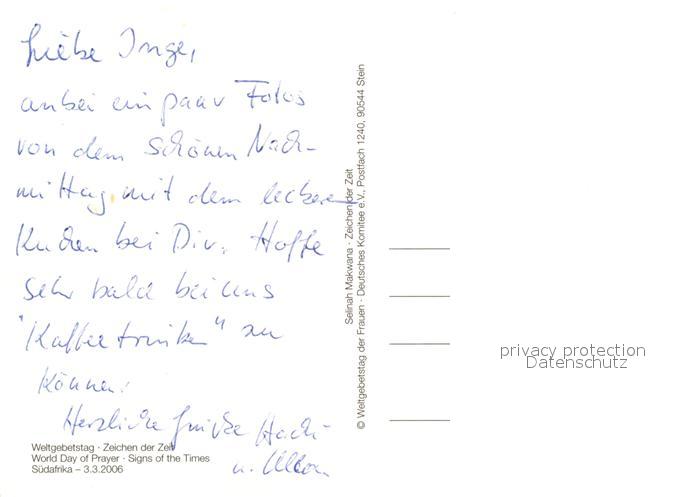 Liebe Inge,
anbei ein paar Fotos
von dem schönen Nach-
mittag mit dem leckeren
Kuchen bei Dir. Hoffe
sehr bald bei uns
"Kaffeetrinken" zu
können.
Herzliche Grüße
u.
Weltgebetstag · Zeichen der Zeit
World Day of Prayer · Signs of the Times
Südafrika – 3.3.2006
Selinah Makwana · Zeichen der Zeit
© Weltgebetstag der Frauen · Deutsches Komitee e.V., Postfach 1240, 90544 Stein
privacy protection
Datenschutz